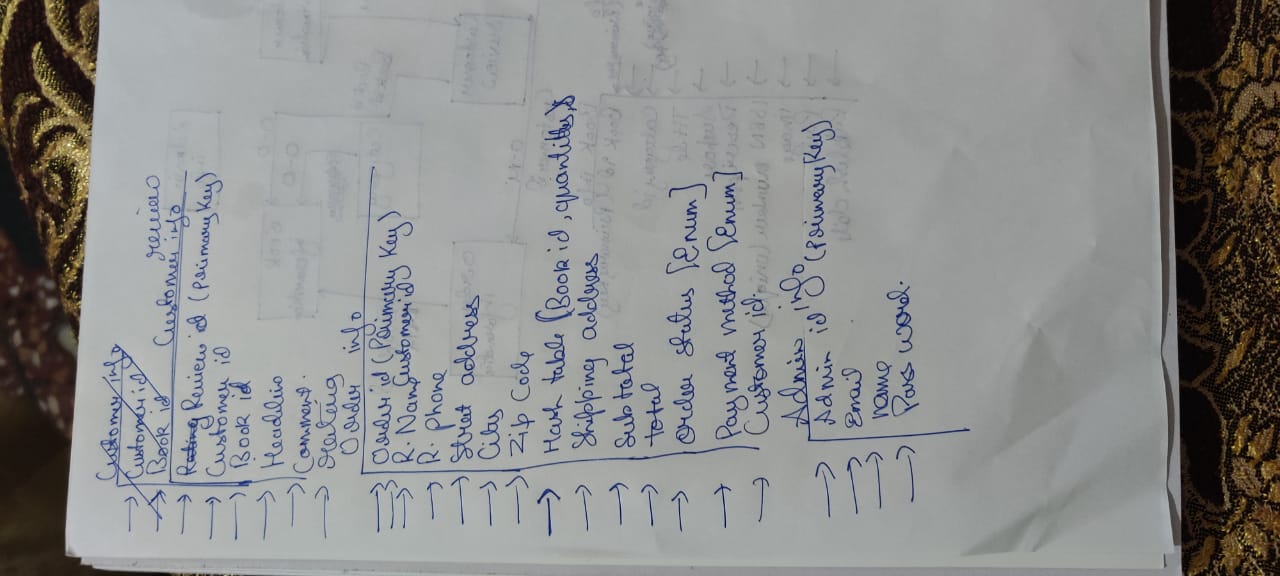 Customer info
Customer id
Book id
Customer info review
Rating Review id (Primary Key)
Customer id
Book id
Headline
Comment.
Rating
Order info
Order id (Primary Key)
R. Name Customer id
R. Phone
Street address
City
Zip Code
Hash table [Book id, quantities]
Shipping address
Sub total
total
Order status [Enum]
Payment method [Enum]
Customer id
Admin info
Admin id (Primary Key)
Email
name
Pass word.